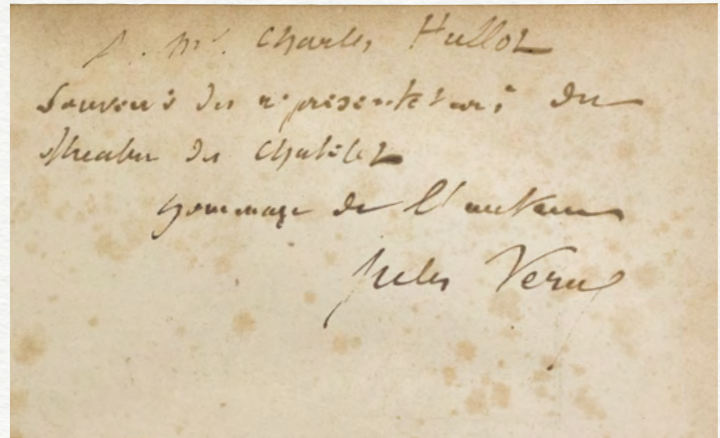 A Mr. Charles Hullot
Souvenir des représentations du
theatre du Chatelet
hommage de l'auteur
Jules Verne